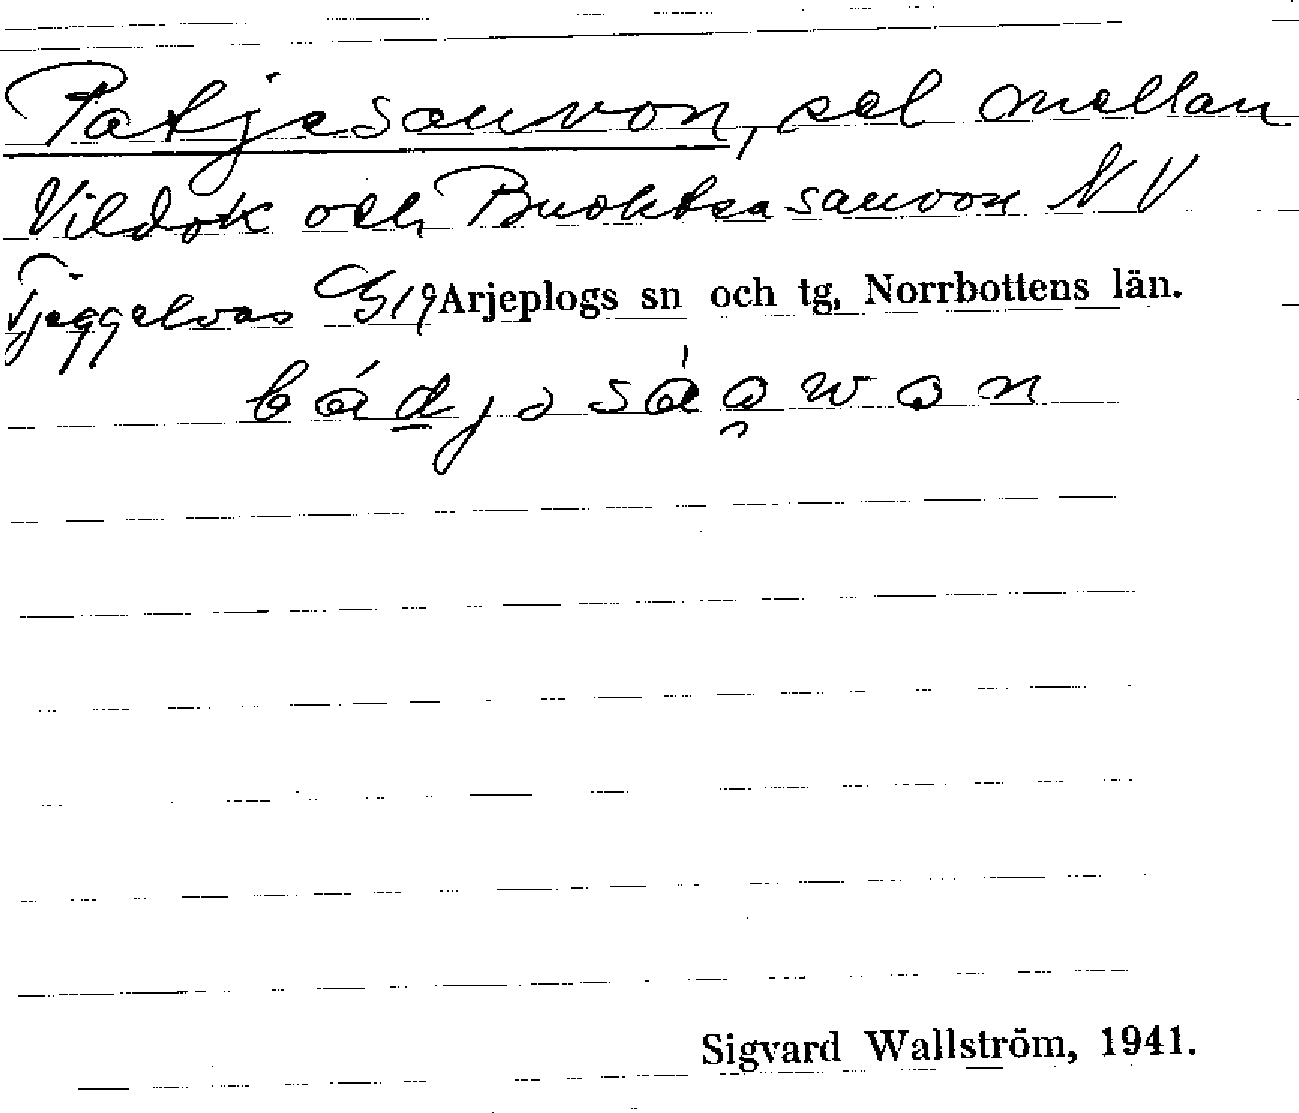 Patjesauvon, sel mellan
Vildok och Buoktsasauvon NV
Tjeggelvas G19 Arjeplogs sn och tg, Norrbottens län.
bád̲jo sáo̯won
Sigvard Wallström, 1941.